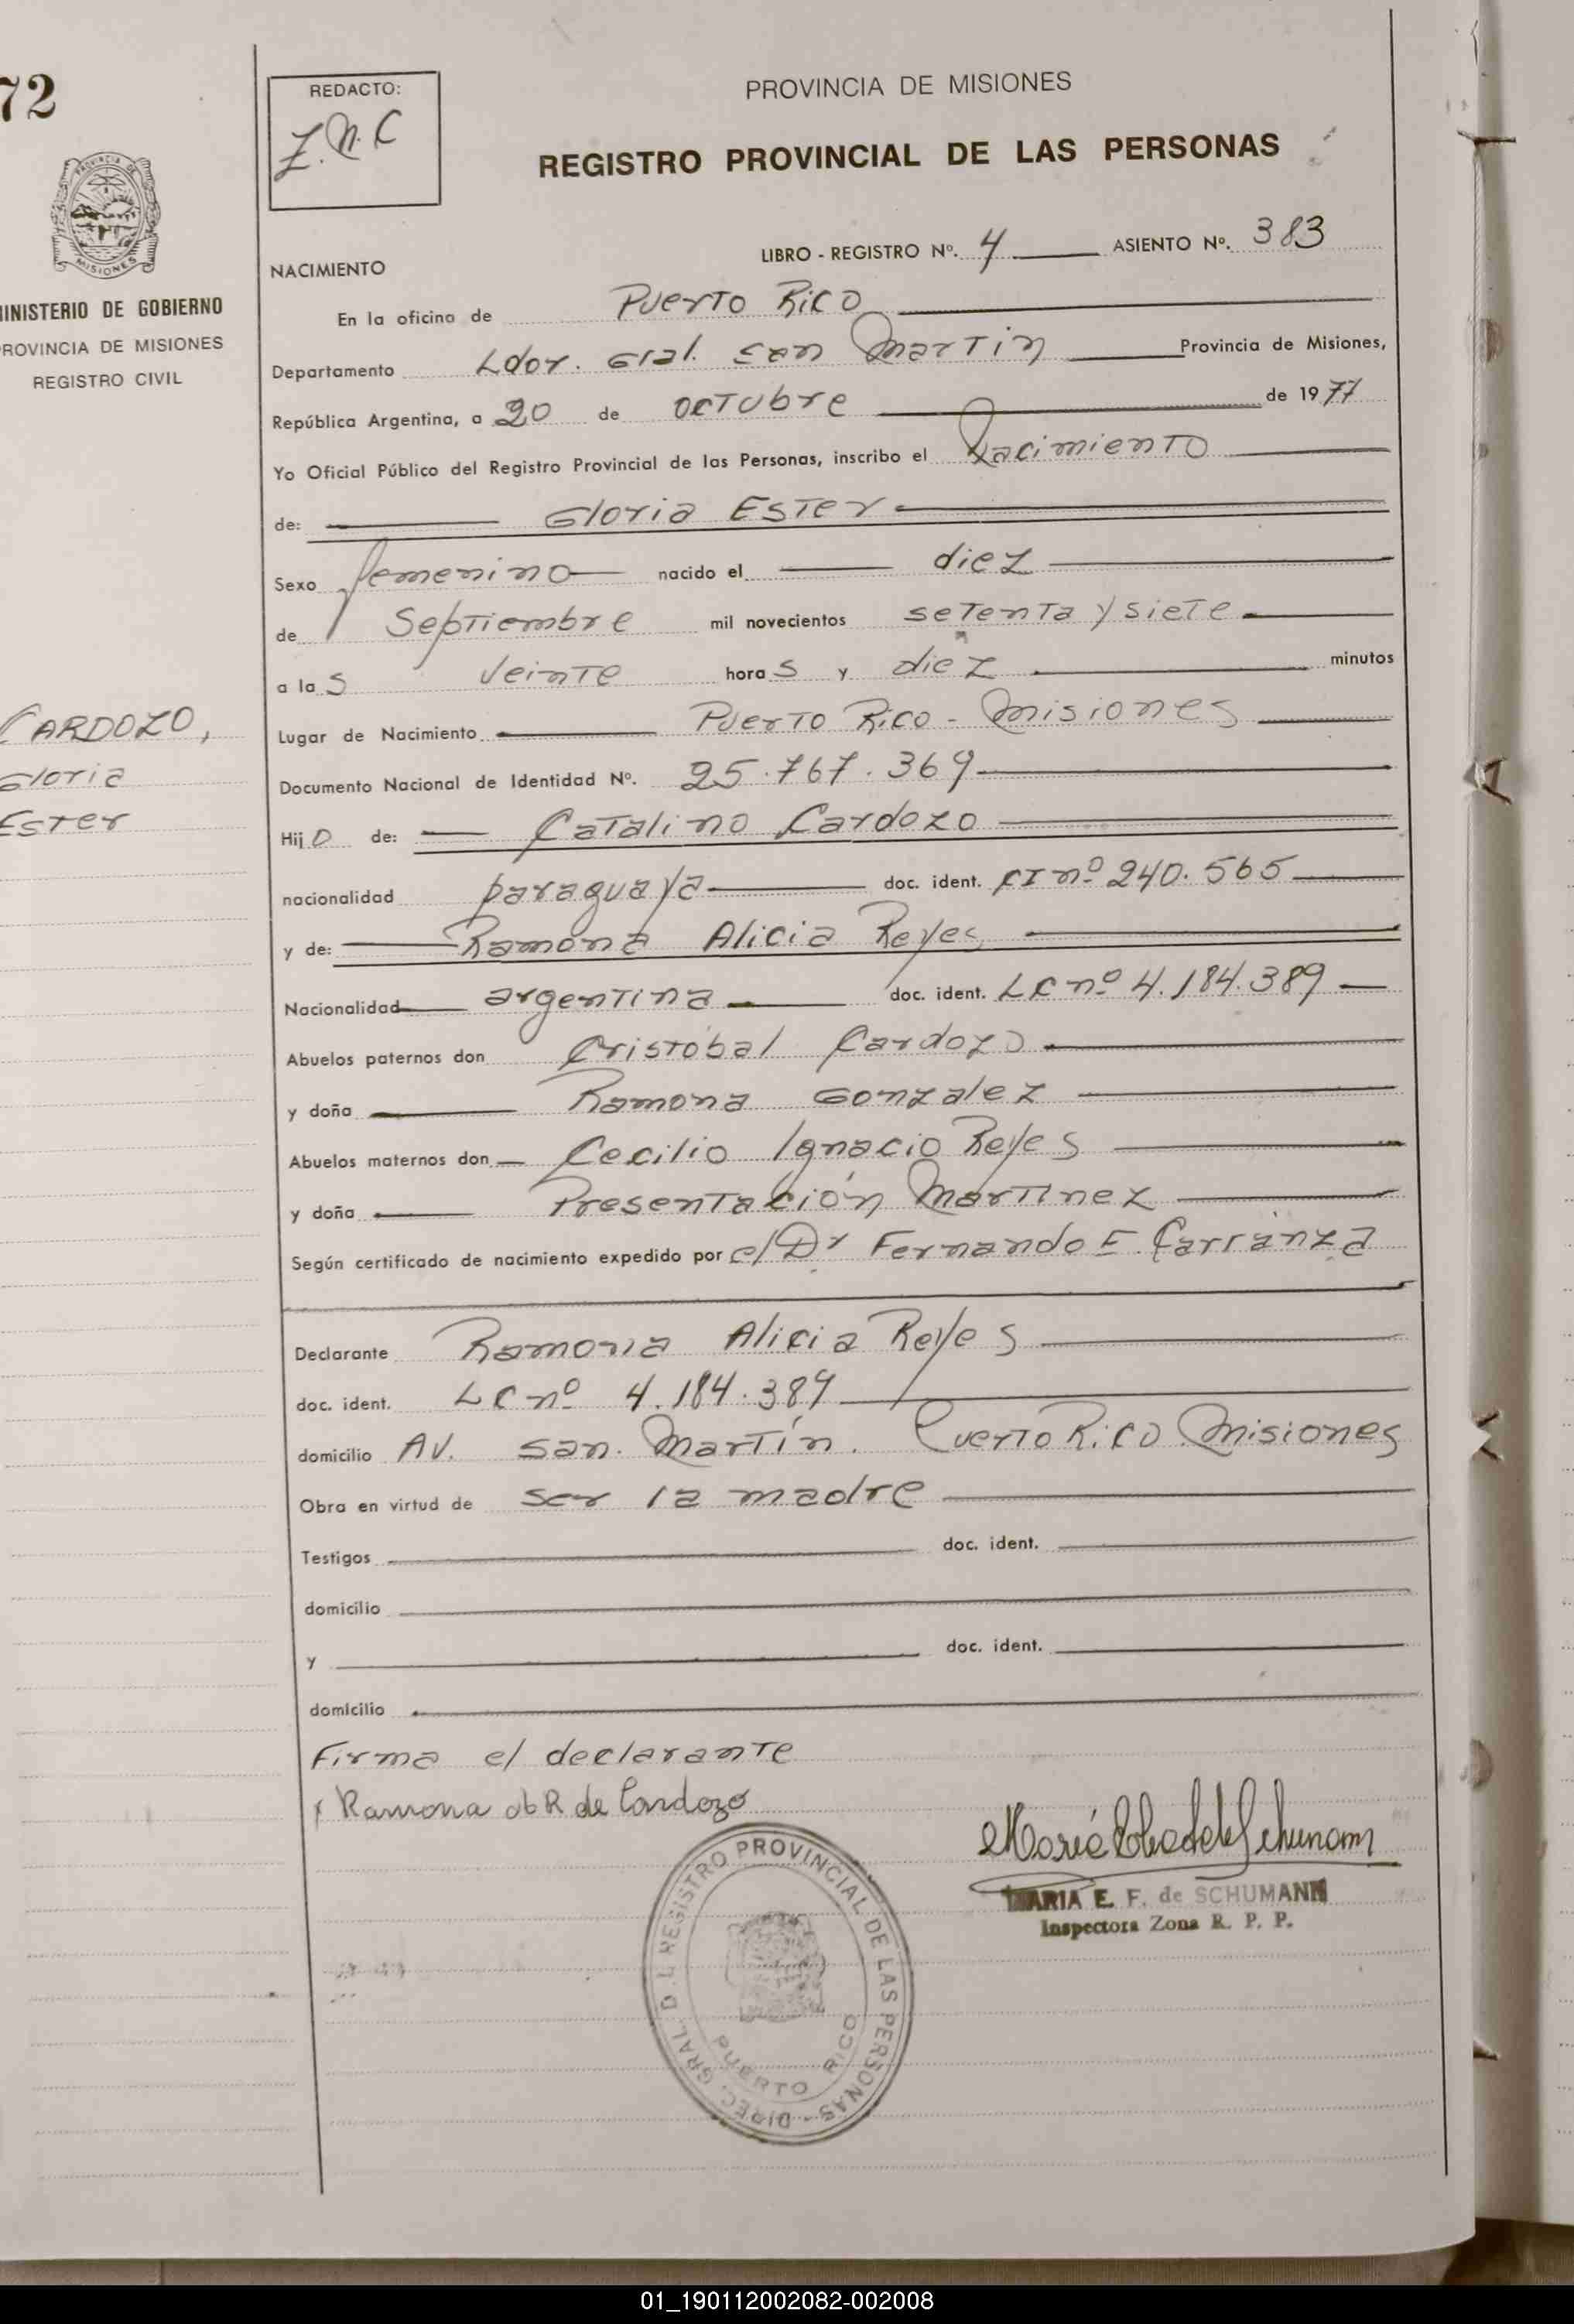 72
MINISTERIO DE GOBIERNO
PROVINCIA DE MISIONES
REGISTRO CIVIL
CARDOZO,
Gloria
Ester
REDACTO:
PROVINCIA DE MISIONES
REGISTRO PROVINCIAL DE LAS PERSONAS
LIBRO - REGISTRO Nº. 4 ASIENTO Nº. 383
NACIMIENTO
En la oficina de Puerto Rico
Departamento Ldor. Gral. San Martin Provincia de Misiones,
República Argentina, a 20 de octubre de 1977
Yo Oficial Público del Registro Provincial de las Personas, inscribo el Nacimiento
de: Gloria Ester
Sexo femenino nacido el diez
de Septiembre mil novecientos setenta y siete
a las veinte horas y diez minutos
Lugar de Nacimiento Puerto Rico - Misiones
Documento Nacional de Identidad Nº. 25.767.369
Hijo de: Catalino Cardozo
nacionalidad paraguaya doc. ident. CI nº 240.565
y de: Ramona Alicia Reyes
Nacionalidad argentina doc. ident. LC nº 4.184.389
Abuelos paternos don Cristóbal Cardozo
y doña Ramona Gonzalez
Abuelos maternos don Cecilio Ignacio Reyes
y doña Presentación Martinez
Según certificado de nacimiento expedido por el Dr Fernando E. Carranza
Declarante Ramona Alicia Reyes
doc. ident. LC nº 4.184.389
domicilio AV. San Martín. Puerto Rico Misiones
Obra en virtud de ser la madre
Testigos doc. ident.
domicilio
y doc. ident.
domicilio
Firma el declarante
Ramona R de Cardozo
MARIA E. F. de SCHUMANN
Inspectora Zona R. P. P.
DIREC. GRAL. D. L REGISTRO PROVINCIAL DE LAS PERSONAS
PUERTO RICO
01_190112002082-002008